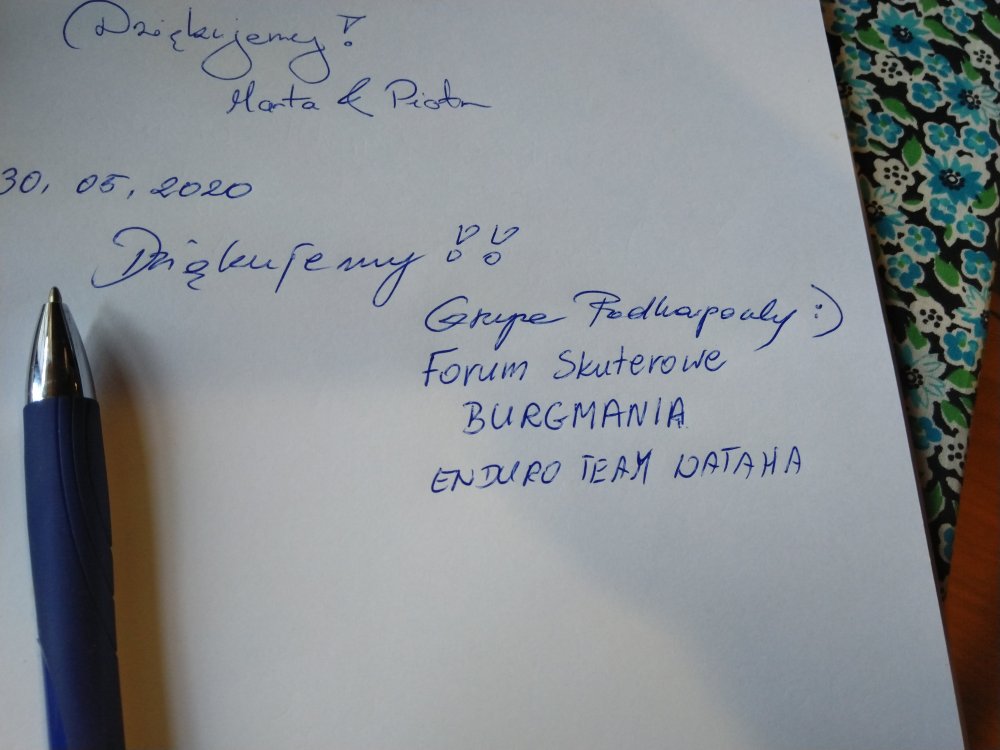 Dziękujemy!
Marta & Piotr
30.05.2020
Dziękujemy!!
Grupa Podkarpacka :)
Forum Skuterowe
BURGMANIA
ENDURO TEAM WATAHA